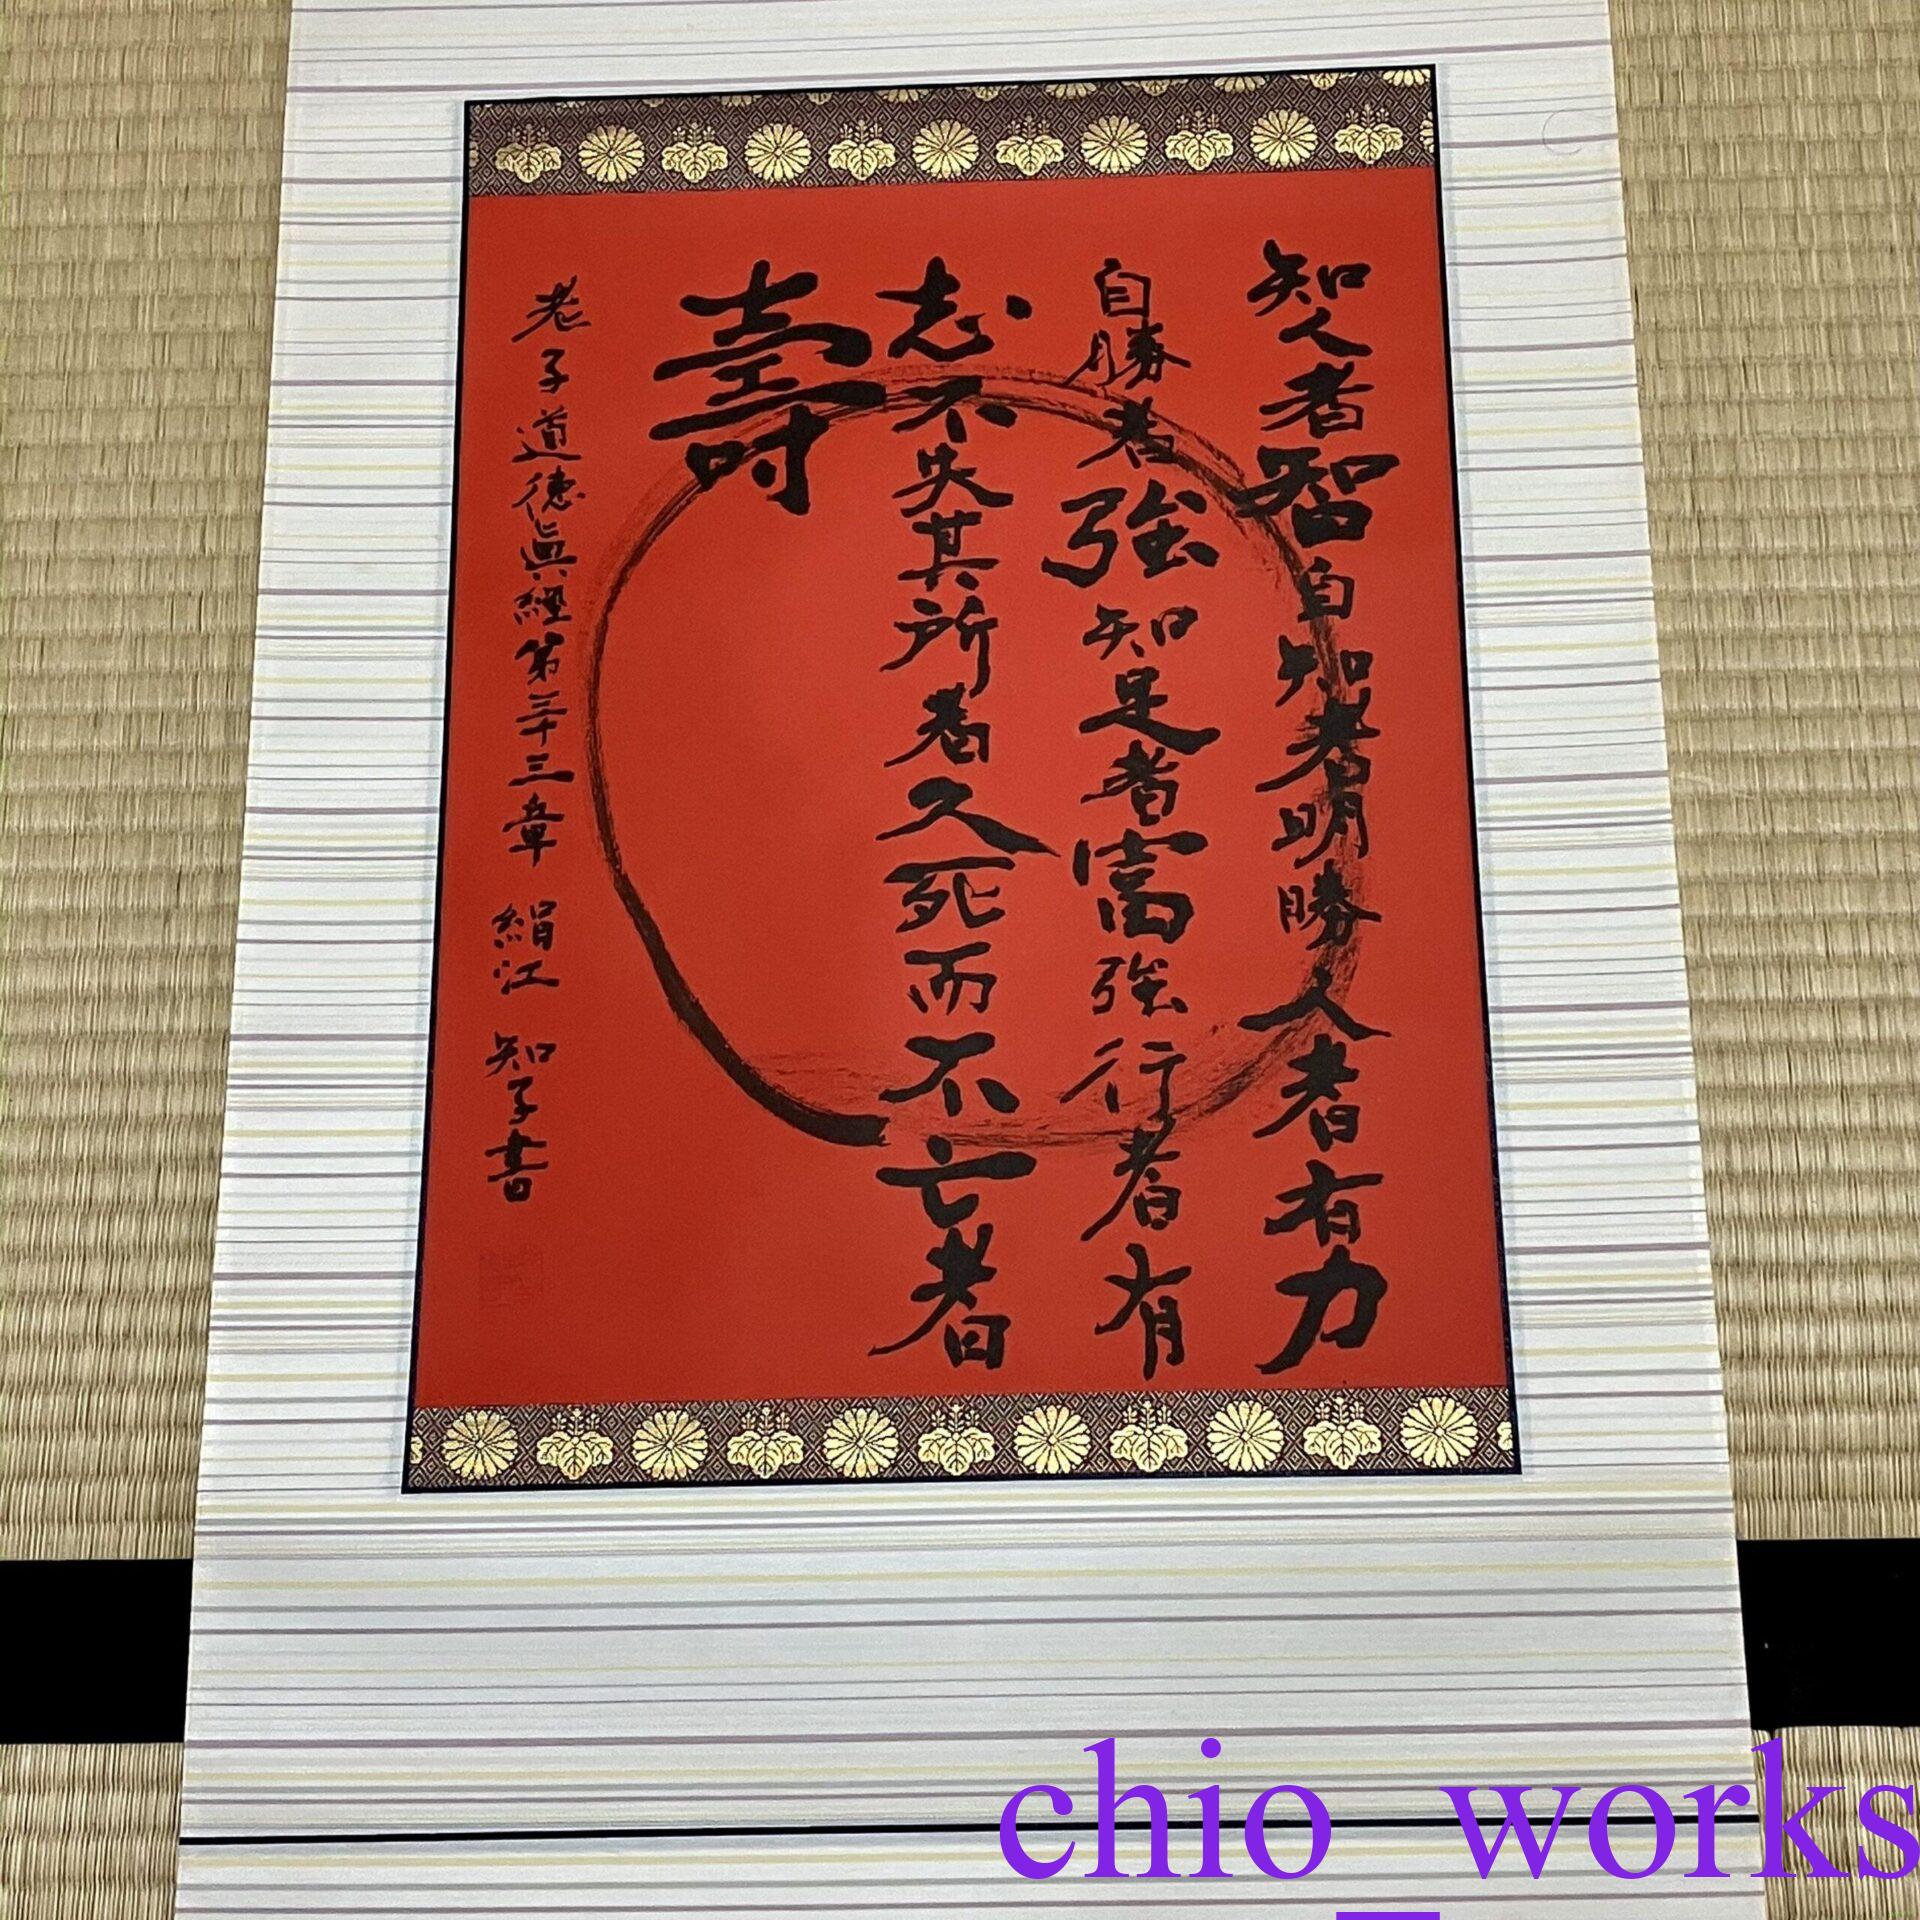 知人者智自知者明勝人者有力
自勝者強知足者富強行者有
志不失其所者久死而不亡者
壽
老子道徳眞經第三十三章 絹江 知子書
chio_works